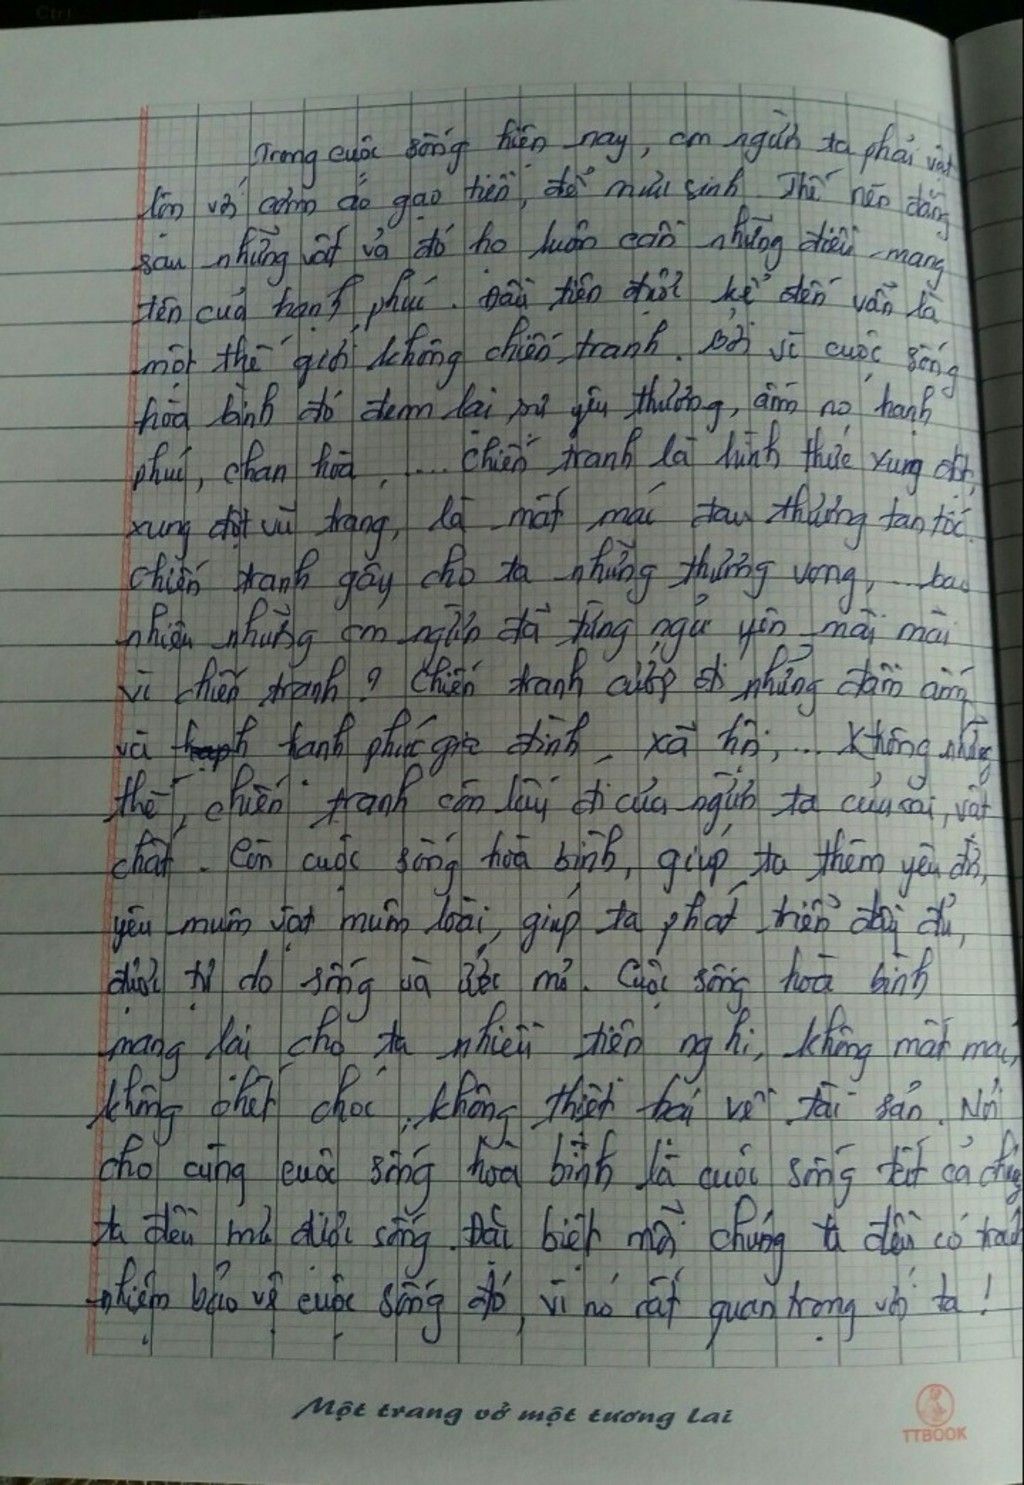 Trong cuộc sống hiện nay, con người ta phải vật
lộn với cơm áo gạo tiền, để mưu sinh. Thế nên đằng
sau những vất vả đó họ luôn cần những điều mang
tên của hạnh phúc. Đầu tiên được kể đến vẫn là
một thế giới không chiến tranh. Bởi vì cuộc sống
hoà bình đó đem lại sự yêu thương, ấm no hạnh
phúc, chan hoà, .... Chiến tranh là hình thức xung đột,
xung đột vũ trang, là mất mác đau thương tan tóc.
Chiến tranh gây cho ta những thương vong, ... bao
nhiêu những con người đã từng ngủ yên mãi mãi
vì chiến tranh? Chiến tranh cướp đi những đầm ấm
và hạnh phúc gia đình, xã hội, ... Không những
thế, chiến tranh còn lấy đi của người ta của cải, vật
chất. Còn cuộc sống hoà bình, giúp ta thêm yêu đời,
yêu muôn vật muôn loài, giúp ta phát triển đầy đủ,
được tự do sống và ước mơ. Cuộc sống hoà bình
mang lại cho ta nhiều tiện nghi, không mất mác,
không chết chóc, không thiệt hại về tài sản. Nói
cho cùng cuộc sống hoà bình là cuộc sống tất cả chúng
ta đều mơ được sống. Đặc biệt mỗi chúng ta đều có trách
nhiệm bảo vệ cuộc sống đó, vì nó rất quan trọng với ta!
Một trang vở một tương lai
TTBOOK